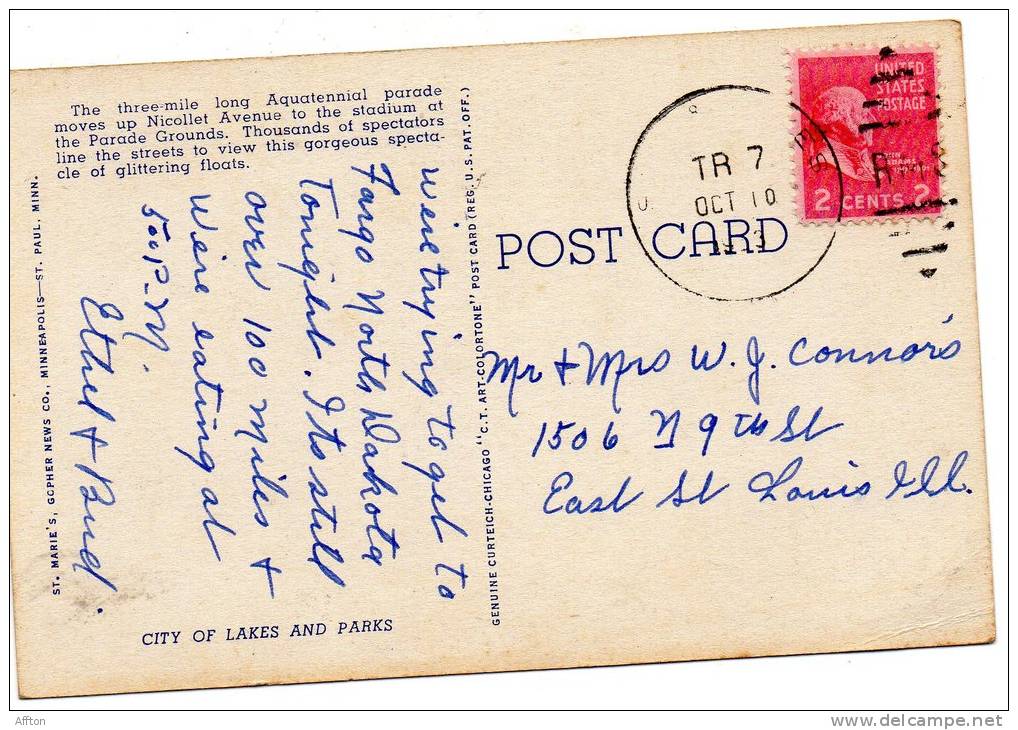 The three-mile long Aquatennial parade
moves up Nicollet Avenue to the stadium at
the Parade Grounds. Thousands of spectators
line the streets to view this gorgeous specta-
cle of glittering floats.
were trying to get to
Fargo North Dakota
Tonight. Its still
over 100 miles +
were eating at
5:00 P.M.
Ethel & Bud.
CITY OF LAKES AND PARKS
ST. MARIE'S, GOPHER NEWS CO., MINNEAPOLIS—ST. PAUL, MINN.
GENUINE CURTEICH-CHICAGO "C.T. ART-COLORTONE" POST CARD (REG. U.S. PAT. OFF.)
POST CARD
TR 7
OCT 10
UNITED
STATES
POSTAGE
JOHN
ADAMS
2 CENTS 2
Mr + Mrs W. J. Connors
1506 N 9th St
East St Louis Ill.
Affton
www.delcampe.net